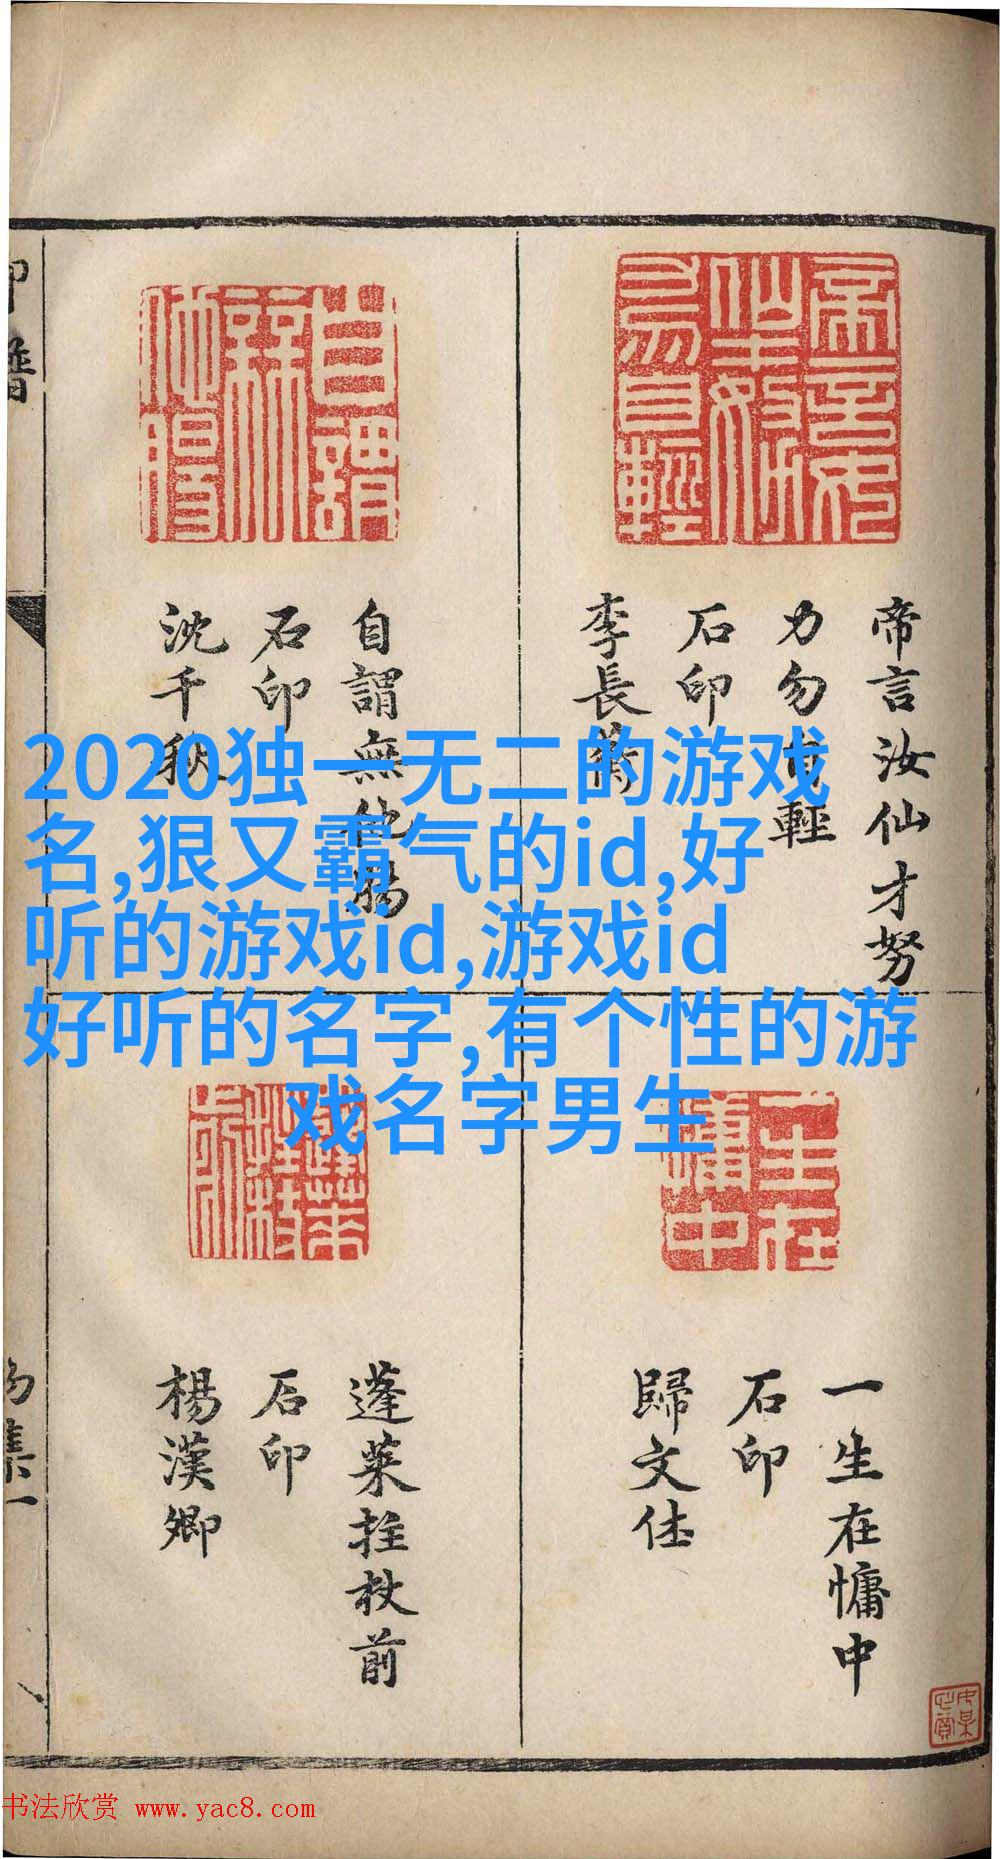 2020独一无二的游戏
名,狠又霸气的id,好
听的游戏id,游戏id
好听的名字,有个性的游
戏名字男生
帝言汝仙才努
力勿自輕
石印
李長蘅
自謂無他腸
石印
沈千秋
一生在慵中
石印
歸文休
蓬萊拄杖前
石印
楊漢卿
书法欣赏 www.yac8.com